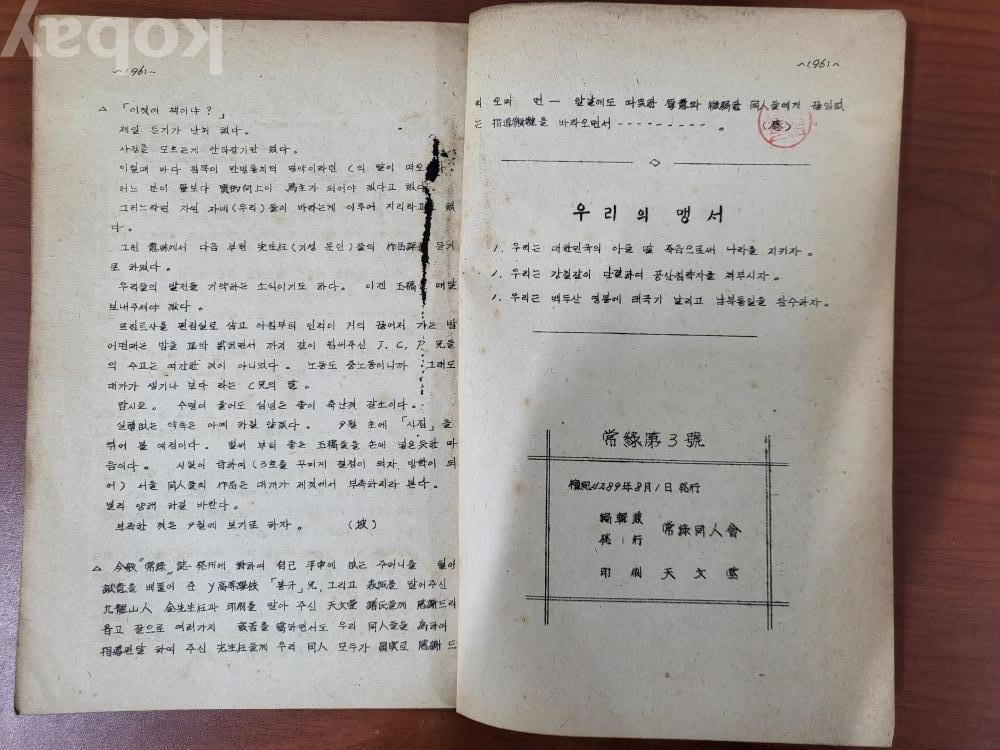 kobay
~(96)~
△ 「이것이 책이냐?」
제일 듣기가 난처 했다.
사정을 모르는게 안타깝기만 했다.
이럴때 마다 침묵이 만병통치의 명약이라던 C의 말이 떠오
어느 분이 量보다 質的向上이 爲主가 되어야 겠다고 했다
그러느라면 자연 자네(우리)들이 바라는게 이루어 지리라고 했
다.
그런 意味에서 다음 부턴 先生任(기성 문인)들의 作品評을 듣기
로 하였다.
우리들의 발전을 기약하는 소식이기도 하다. 이젠 玉稿를 매달
보내주셔야 겠다.
프린트사를 편집실로 삼고 아침부터 인적이 거의 끊어져 가는 밤
어떤때는 밤을 꼬박 밝히면서 까지 같이 힘써주신 J. G. P. 兄들
의 수고는 여간한 것이 아니었다. 노동도 중노동이니까 그래도
대가가 생기나 보다 라는 C兄의 말.
맙시요. 수명이 줄어도 십년은 좋이 축난것 같소이다.
실행없는 약속은 아예 하질 않겠다. 9월 초에 「사집」을
엮어 볼 예정이다. 벌써 부터 좋은 玉稿들을 손에 넣은듯한 마
음이다. 시일이 급하여 (3호를 꾸미게 결정이 되자 방학이 되
어) 서울 同人들의 作品은 대개가 제것에서 부족하리라 본다.
널리 양해 하길 바란다.
부족한 것은 9월에 보기로 하자. (坡)
△ 今般 "常綠" 誌 発刊에 対하여 自己 手中에 없는 주머니를 털어
誠意를 베풀어 준 Y高等學校 「봉규」兄, 그리고 表紙를 맡어주신
九龍山人 金先生任과 印刷를 맡아 주신 天文堂 諸氏들께 感謝드리
옵고 끝으로 여러가지 苦를 當하면서도 우리 同人들을 為하여
指導편달 하여 주신 先生任들께 우리 同人 모두가 眞実로 感謝드
~(96)~
리 오며 먼 — 앞날에도 따뜻한 厚意와 同人들에게 끊임없
는 指導鞭撻을 바라오면서 - - - - - - - - - 。 (巷)
우리의 맹서
1. 우리는 대한민국의 아들 딸 죽음으로써 나라를 지키자.
1. 우리는 강철같이 단결하여 공산침략자를 쳐부시자.
1. 우리는 백두산 영봉에 태극기 날리고 남북통일을 완수하자.
常綠第3號
檀紀4289年8月1日 発行
編輯兼
発行 常綠同人會
印刷 天文堂